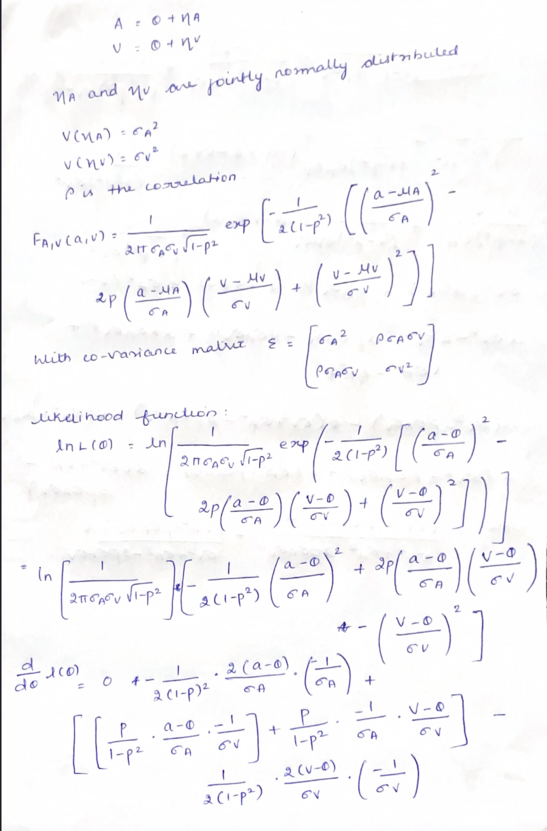 A = θ + ηA
V = θ + ηV
ηA and ηV are jointly normally distributed
V(ηA) = σA²
V(ηV) = σV²
ρ is the correlation
FA,V(a,v) = 1/(2π σA σV √(1-ρ²)) exp[-1/(2(1-ρ²)) (((a-μA)/σA)² -
2ρ((a-μA)/σA)((v-μV)/σV) + ((v-μV)/σV)²)]
With co-variance matrix Σ = [σA² ρσAσV
ρσAσV σV²]
likelihood function:
ln L(θ) = ln[1/(2πσAσV √(1-ρ²)) exp(-1/(2(1-ρ²)) [((a-θ)/σA)² -
2ρ((a-θ)/σA)((v-θ)/σV) + ((v-θ)/σV)²])]
= ln[1/(2πσAσV √(1-ρ²))] [-1/(2(1-ρ²)) ((a-θ)/σA)² + 2ρ((a-θ)/σA)((v-θ)/σV)
- ((v-θ)/σV)²]
d/dθ l(θ) = 0 + -1/(2(1-ρ)²) · 2(a-θ)/σA · (-1/σA) +
[[ρ/(1-ρ²) · (a-θ)/σA · -1/σV] + ρ/(1-ρ²) · -1/σA · (v-θ)/σV] -
1/(2(1-ρ²)) · 2(v-θ)/σV · (-1/σV)